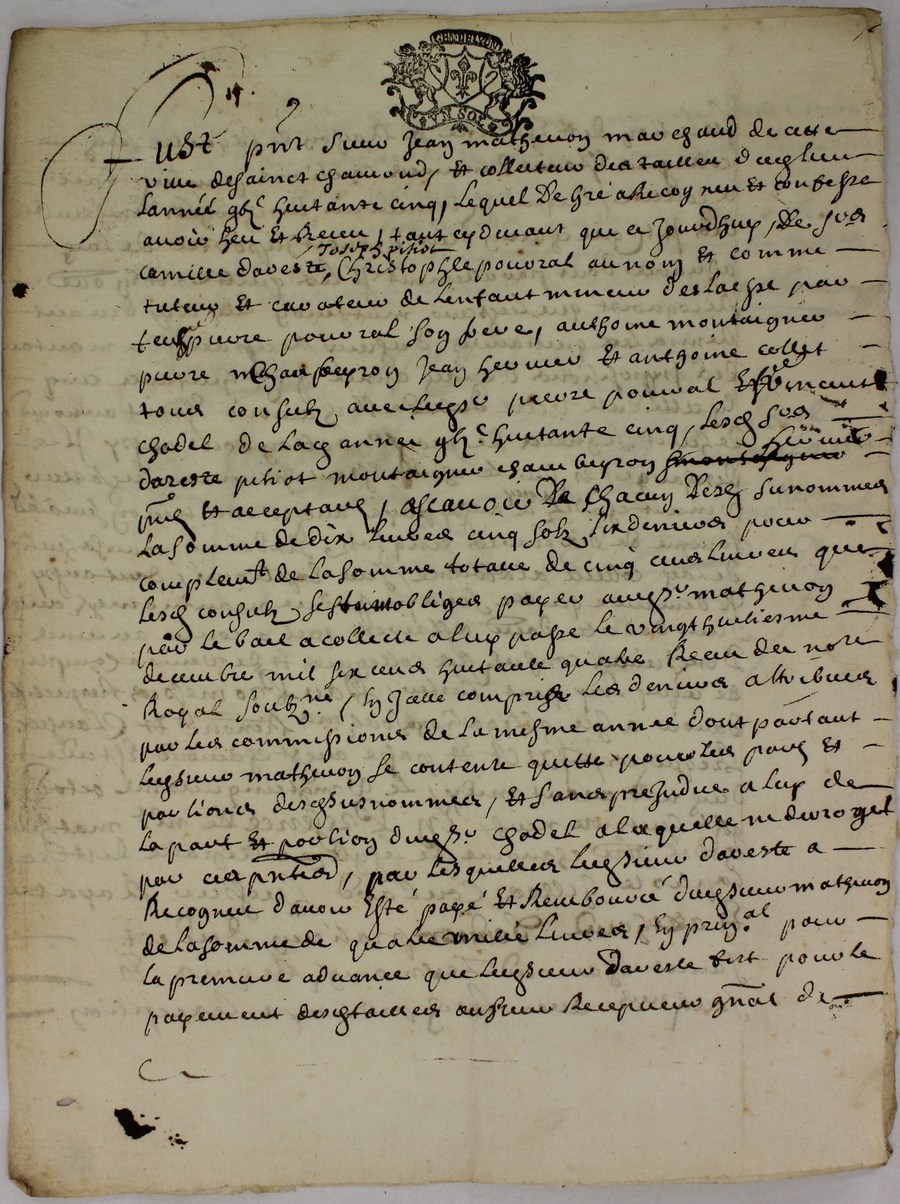 GEN DE LYON
VN SOL
Fust pnt sieur Jean mathevon marchand de cette
ville de sainct chamond, et collecteur des tailles d'icelluy
lannée gbc huitante cinq, lequel de gré a Recogneu et confessé
avoir heu et Receu, tant cydevant que ce Jourdhuy, de srs
Joseph pitiot
camille dareste, Christophle poural au nom et comme
tuteur et curateur de lenfant mineur deslaissé par
feu sr pierre poural son frere, anthoine montaignier
pierre Chambeyron Jean hervier et anthoine collet
tous consulz avec leur sr pierre poural et vincent
chadel de lad annee gbc huitante cinq, lesd srs
dareste pitiot montaignier chambeyron hervier
pns et acceptans, ascavoir de chacun desd surnommes
la somme de dix livres cinq solz six deniers pour
complemt de la somme totalle de cinq cens livres que
lesd consulz se sont obliges payer aud sr mathevon
par le bail a collecte a luy passé le vingthuitiesme
decembre mil six cens huitante quatre Receu du nore
Royal soubzné, En Icelle compris les deniers attribues
par les commissions de la mesme annee dont partant
led sieur mathevon se contente quitte pour les parts et
portions desd susnommes, et sans prejudice a luy de
la part et portion dud sr chadel a laquelle nest deroget
par ces pntes, par lesquelles led sieur dareste a
Recogneu davoir Esté payé et Rembourcé dud sieur mathevon
de la somme de quatre mille livres, En prinal pour
la premiere advance que led sieur dareste fist pour le
payement desd tailles au sieur Recepveur gnal de